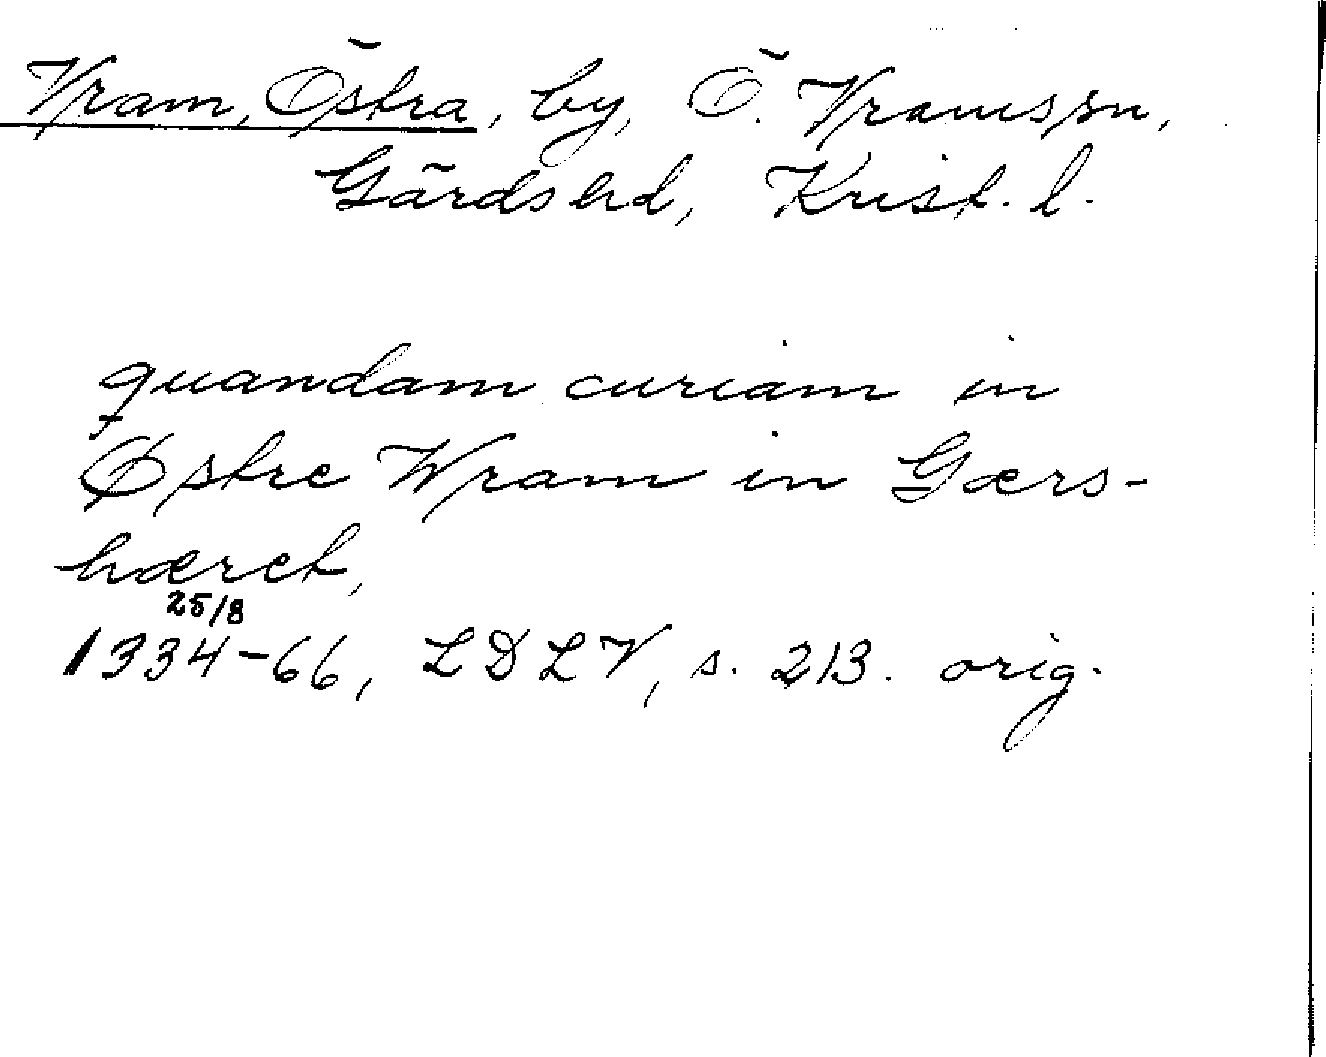 Vram, Östra, by, Ö. Vramssn,
Gärds hd, Krist. l.
quandam curiam in
Østre Wram in Gærs-
hæret,
25/8
1334-66, LDLV, s. 213. orig.